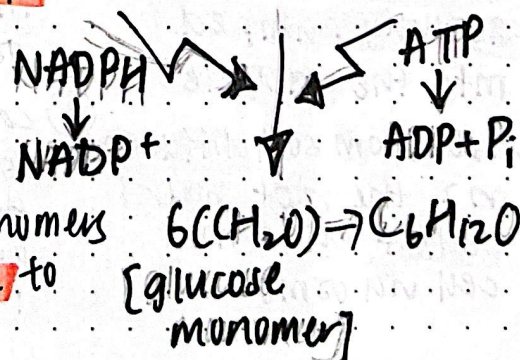 NADPH ATP
↓ ↓
NADP+ ADP+Pi
nomers 6(CH₂O)⇒C₆H₁₂O
to [glucose
monomer]